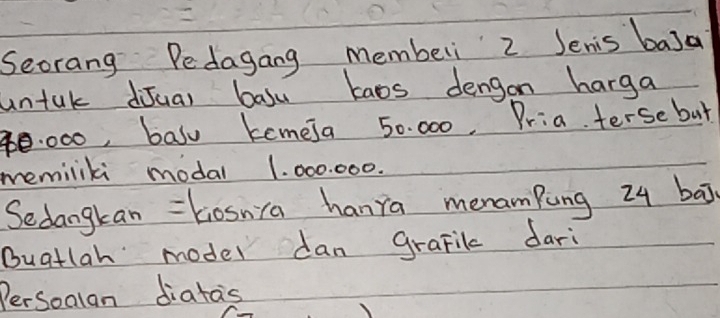 Seorang Pedagang membeli 2 Jenis baja
untuk diJual basu kaos dengan harga
.000, basu kemeja 50.000. Pria tersebut
memiliki modal 1.000.000.
Sedangkan = kiosnya hanya menampung 24 baju
Buatlah model dan grafik dari
Persoalan diatas